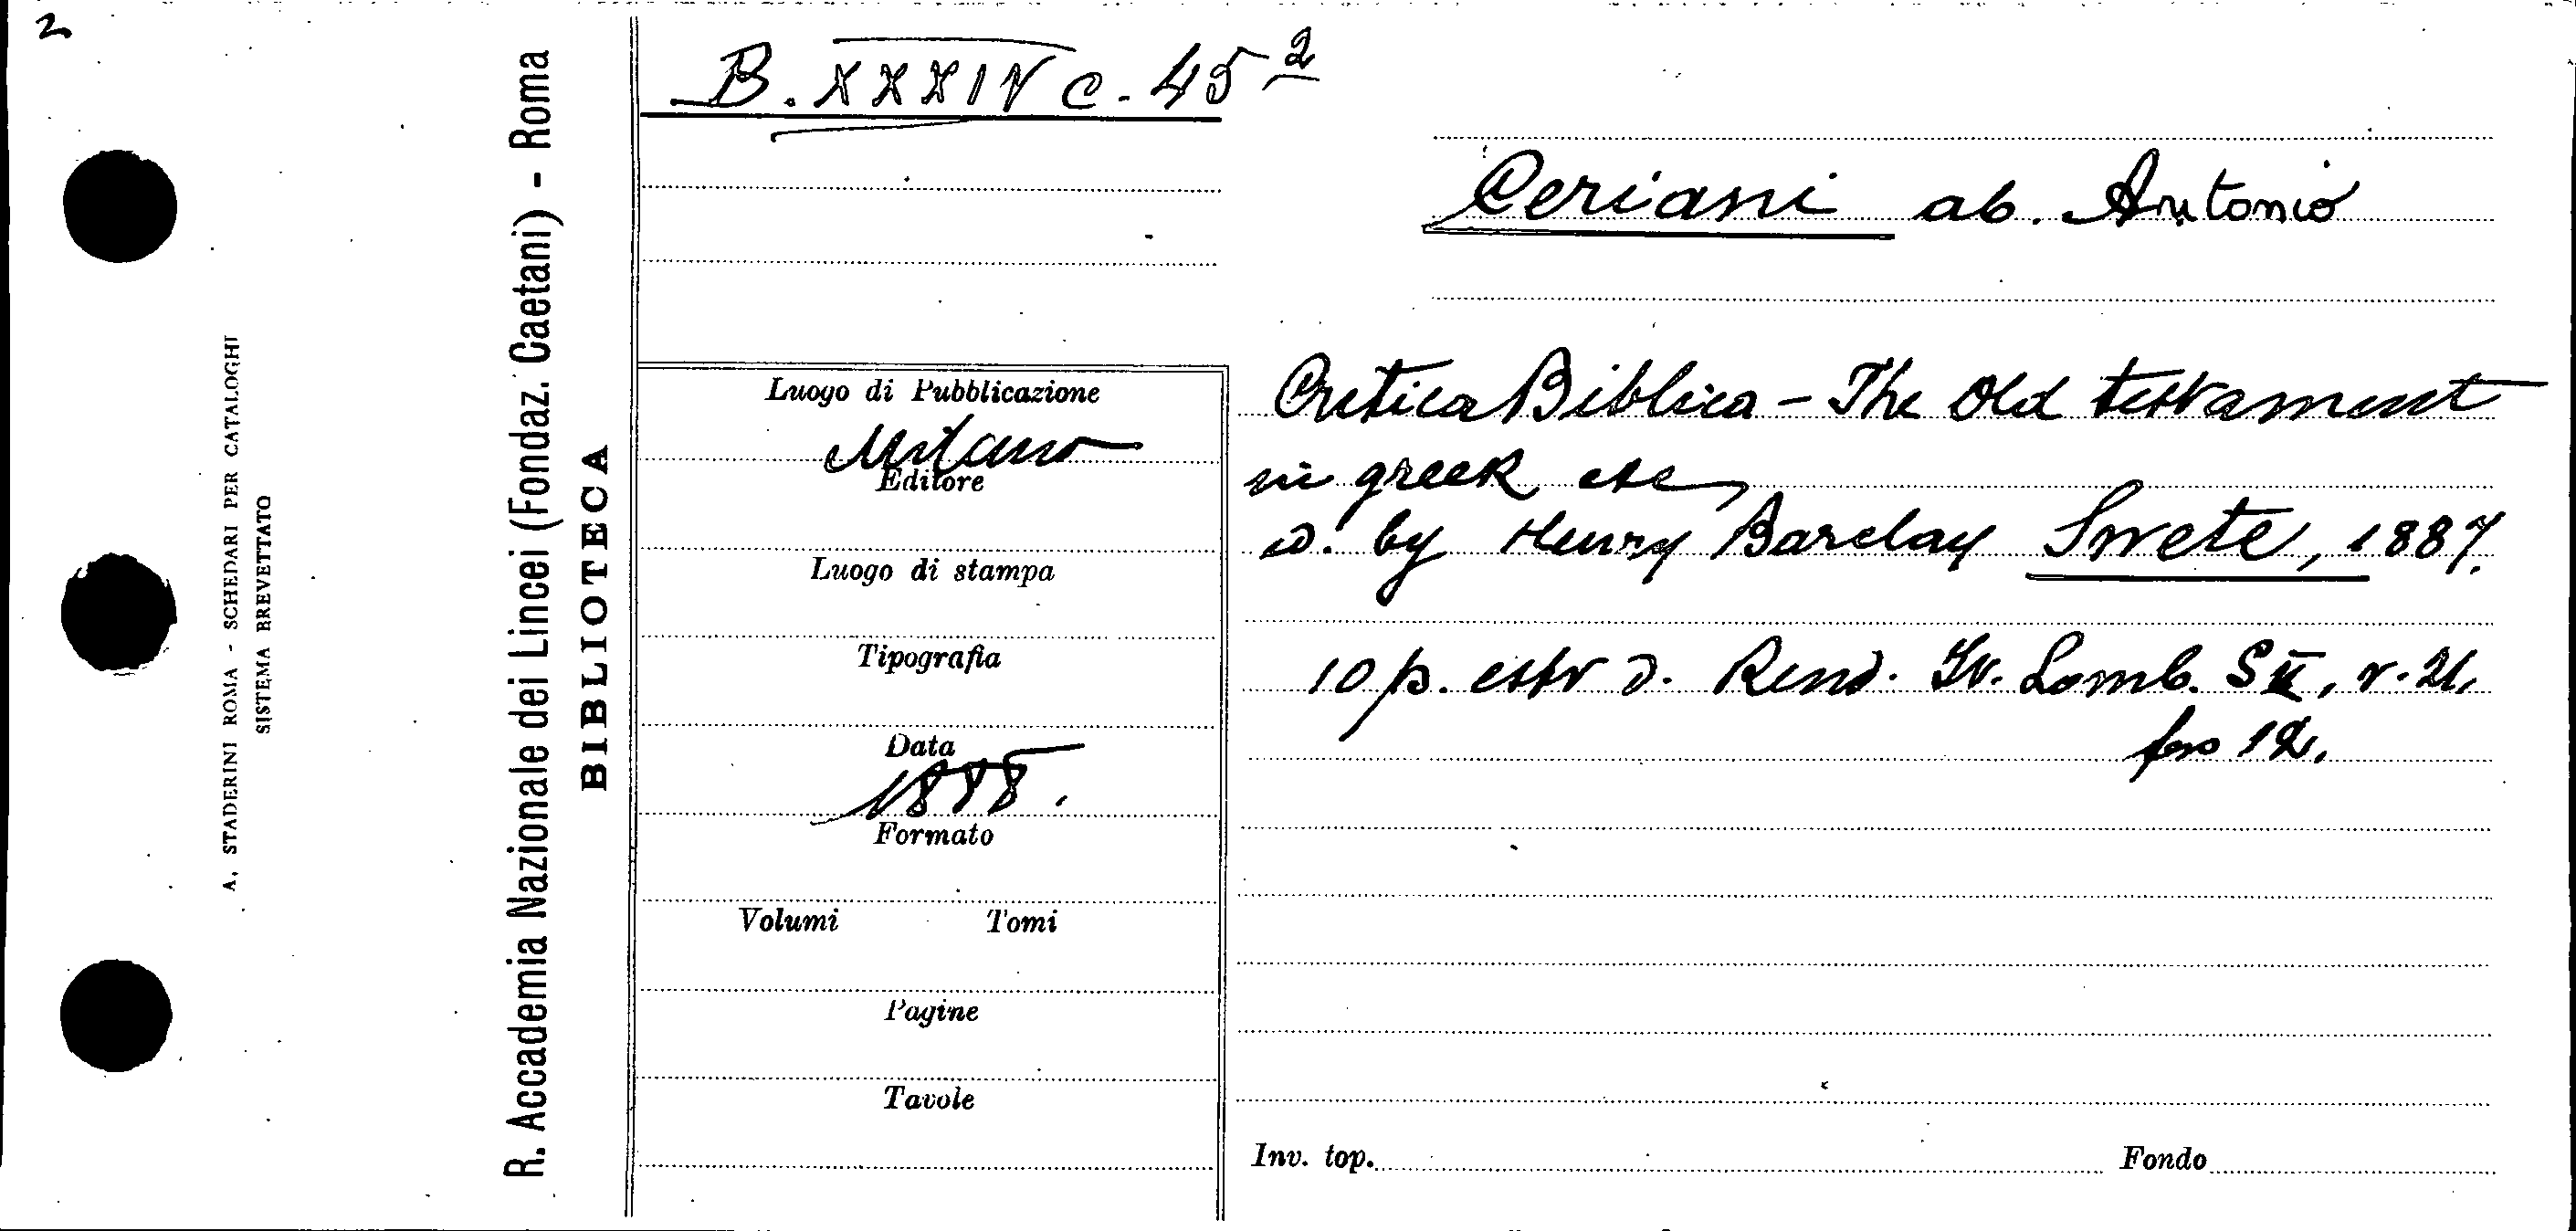 2
B. XXXIV c. 45 2
Ceriani ab. Antonio
Critica Biblica - The Old testament
in greek etc,
ed. by Henry Barclay Swete, 1887.
10 p. estr d. Rend. Ist. Lomb. S II, v. 21,
fas 12.
Luogo di Pubblicazione
Milano
Editore
Luogo di stampa
Tipografia
Data
1888.
Formato
Volumi Tomi
Pagine
Tavole
Inv. top. Fondo
R. Accademia Nazionale dei Lincei (Fondaz. Caetani) - Roma
BIBLIOTECA
A. STADERINI ROMA - SCHEDARI PER CATALOGHI
SISTEMA BREVETTATO